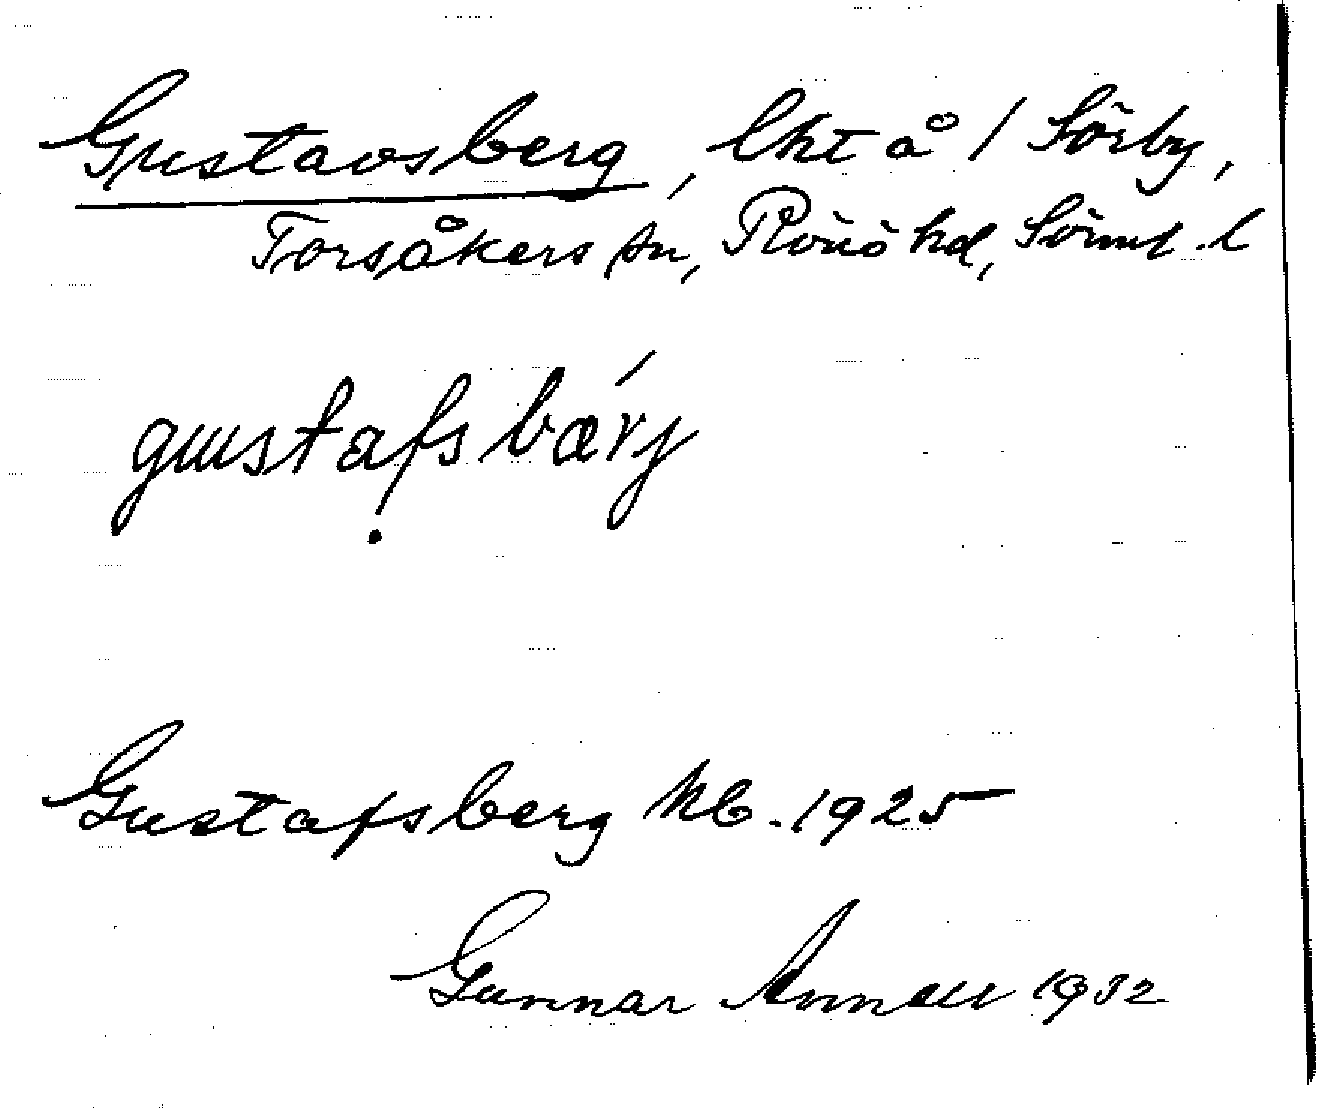 Gustavsberg, lht å 1 Sörby,
Torsåkers sn, Rönö hd, Sörml. l
gustafsbärj
Gustafsberg kb. 1925
Gunnar Annell 1932